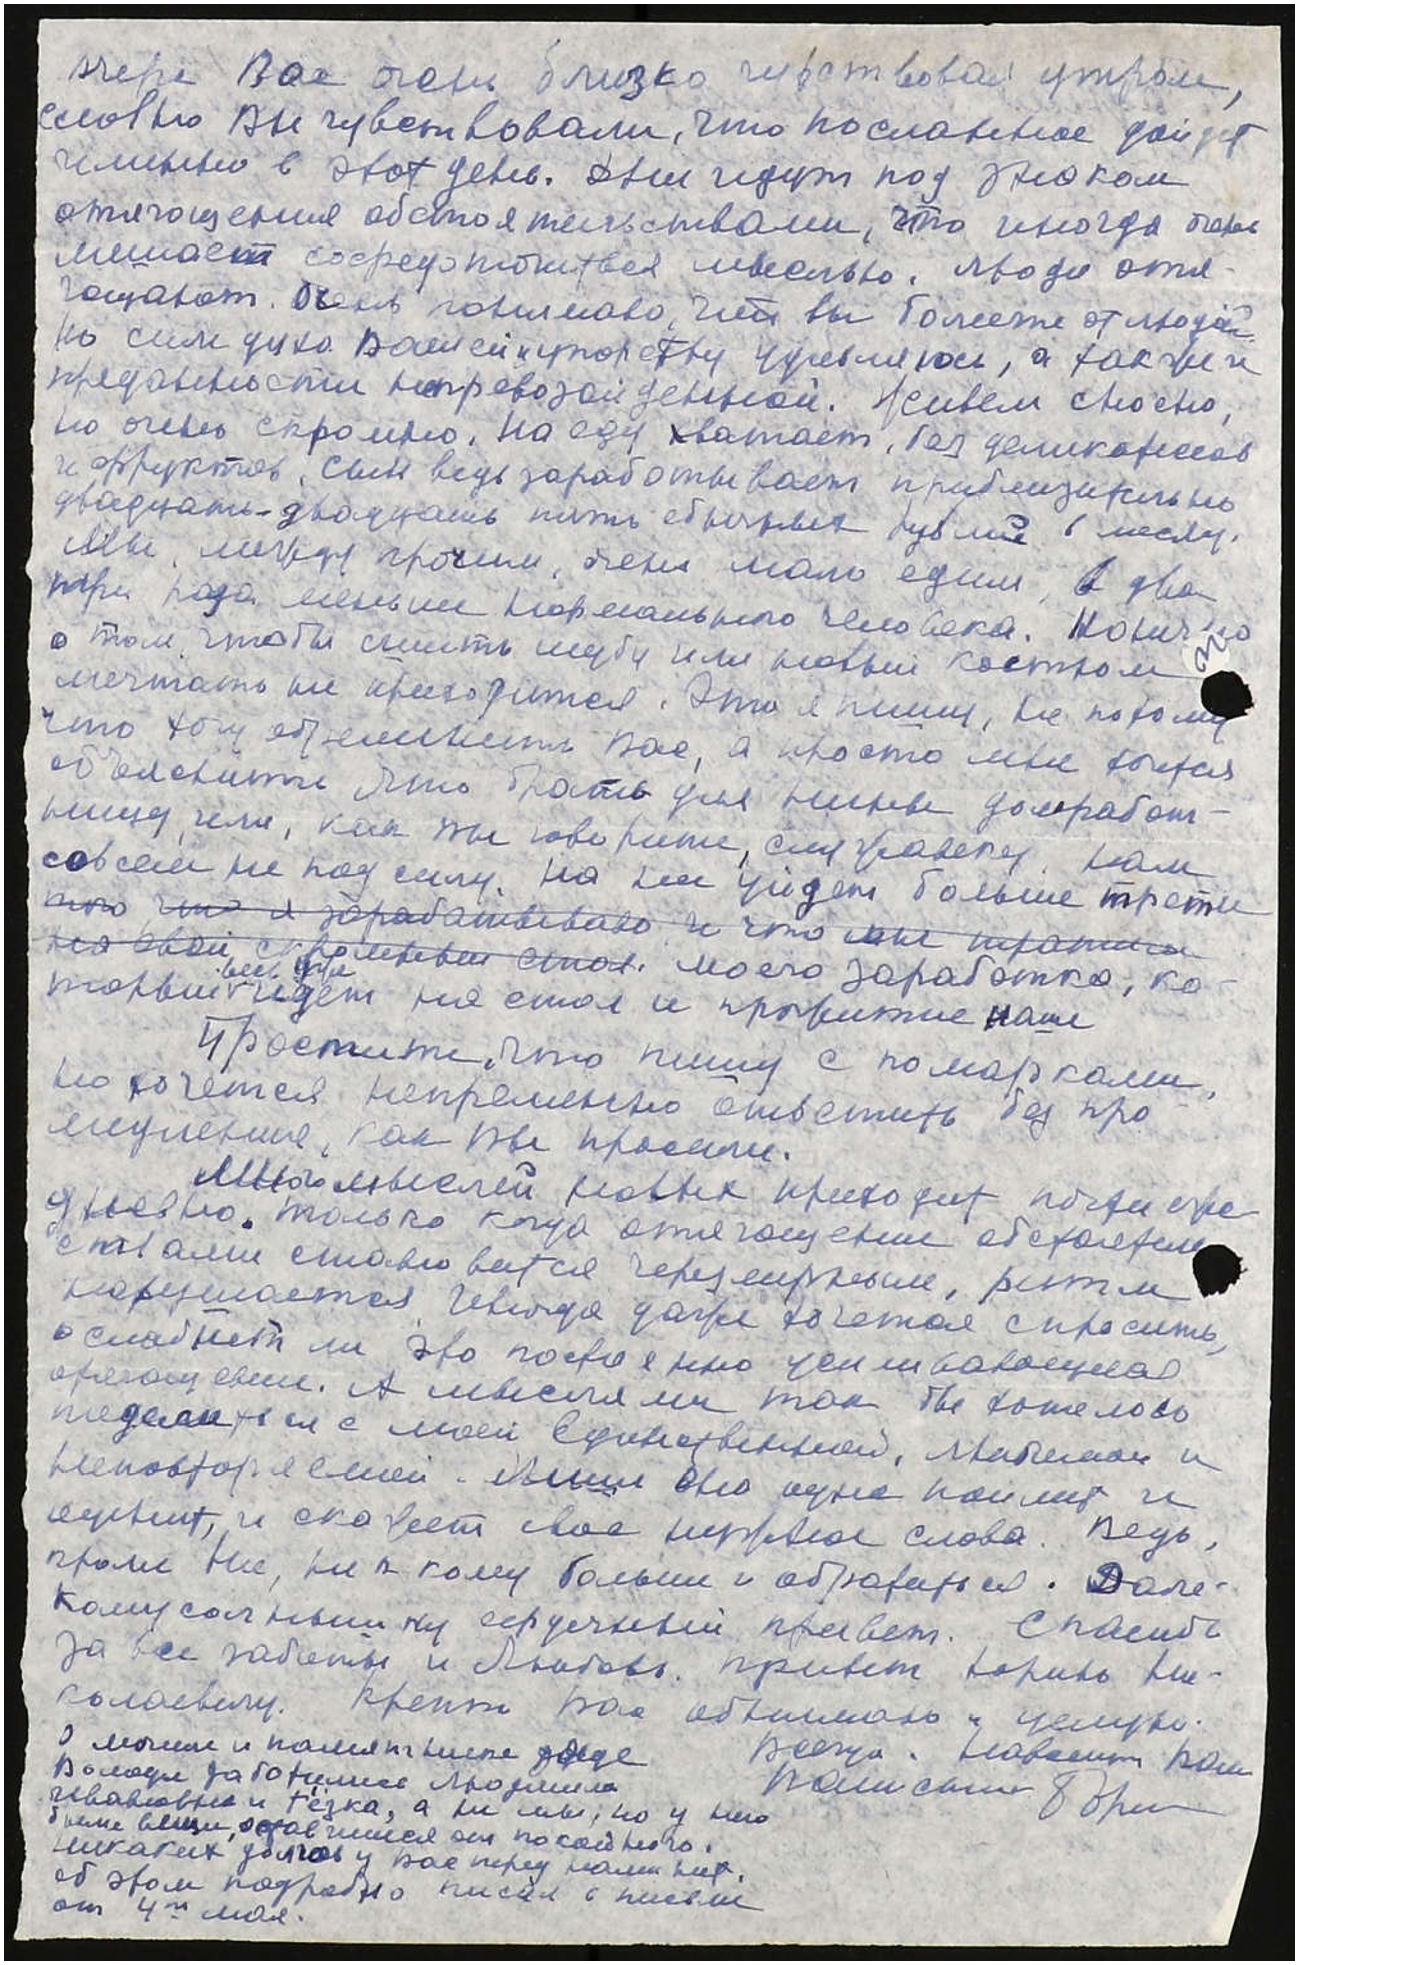 вчера Вас очень близко чувствовал утром,
словно Вы чувствовали, что посланное дойдет
именно в этот день. Дни идут под знаком
отягощения обстоятельствами, что иногда очень
мешает сосредоточиться мыслью. Люди отя-
гощают. Очень понимаю, что вы болеете от людей.
Но силе духа Вашей и упорству удивляюсь, а также и
преданности непревзойденной. Живем сносно,
но очень скромно. На еду хватает, без деликатесов
и фруктов. Сын ведь зарабатывает приблизительно
двадцать-двадцать пять обычных рублей в месяц.
Мы, между прочим, очень мало едим, в два
три раза меньше нормального человека. Но
о том, чтобы сшить шубу или новый костюм
мечтать не приходится. Это я пишу, не потому
что хочу обременить Вас, а просто мне хочется
объяснить что брать для Нины домработ-
ницу, или, как Вы говорите, служанку нам
совсем не под силу. На нее уйдет больше трети
того что я зарабатываю и что мы тратим
на свой скромный стол. моего заработка, ко-
весь
торый идет на стол и прожитие наше
Простите, что пишу с помарками,
но хочется непременно ответить без про
медления, как Вы просили.
Много мыслей новых приходит почти еже
дневно. Только когда отягощение обстоятель
ствами становится чрезмерным, ритм
нарушается. Иногда даже хочется спросить,
ослабнет ли это постоянно усиливающееся
отягощение. А мыслями так бы хотелось
поделиться с моей Единственной, Любимой и
Неповторяемой. Лишь Она одна поймет и
оценит, и скажет свое нужное слово. Ведь,
кроме Нее, ни к кому больше и обратиться. Дале-
кому солнышку сердечный привет. Спасибо
за все заботы и Любовь. Привет Борису Ни-
колаевичу. Крепко Вас обнимаю и целую.
Всегда и навсегда Ваш
Ваш сын Борис
О могиле и памятнике дяде
Володе заботились Людмила
Ивановна и тёзка, а не мы, но у него
были вещи, оставшиеся от покойного.
Никаких долгов у Вас перед нами нет.
Об этом подробно писал в письме
от 4го мая.